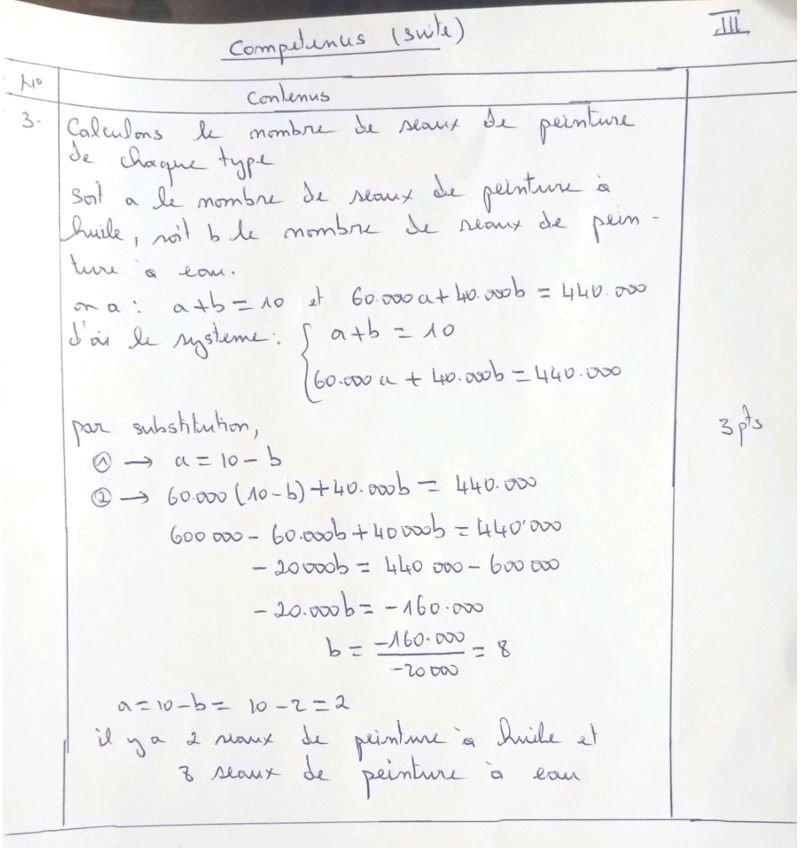 Compétences (suite)
III
No
Contenus
3. Calculons le nombre de seaux de peinture
de chaque type
Soit a le nombre de seaux de peinture à
huile, soit b le nombre de seaux de pein-
ture à eau.
on a : a+b = 10 et 60.000a+40.000b = 440.000
d'où le systeme : { a+b = 10
60.000a + 40.000b = 440.000
par substitution,
① → a = 10 - b
② → 60.000(10-b)+40.000b = 440.000
600 000 - 60.000b + 40 000b = 440'000
- 20000b = 440 000 - 600 000
- 20.000b = -160.000
b = -160.000 / -20 000 = 8
3 pts
a = 10-b = 10-2 = 2
il y a 2 seaux de peinture à huile et
8 seaux de peinture à eau